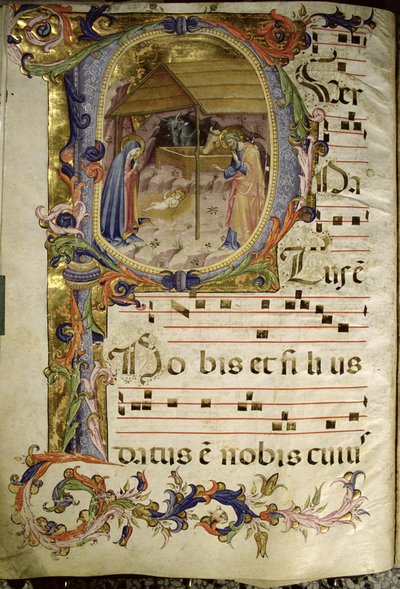 P
uer
Na
tus ē
No bis et fi li us
datus ē nobis cuius